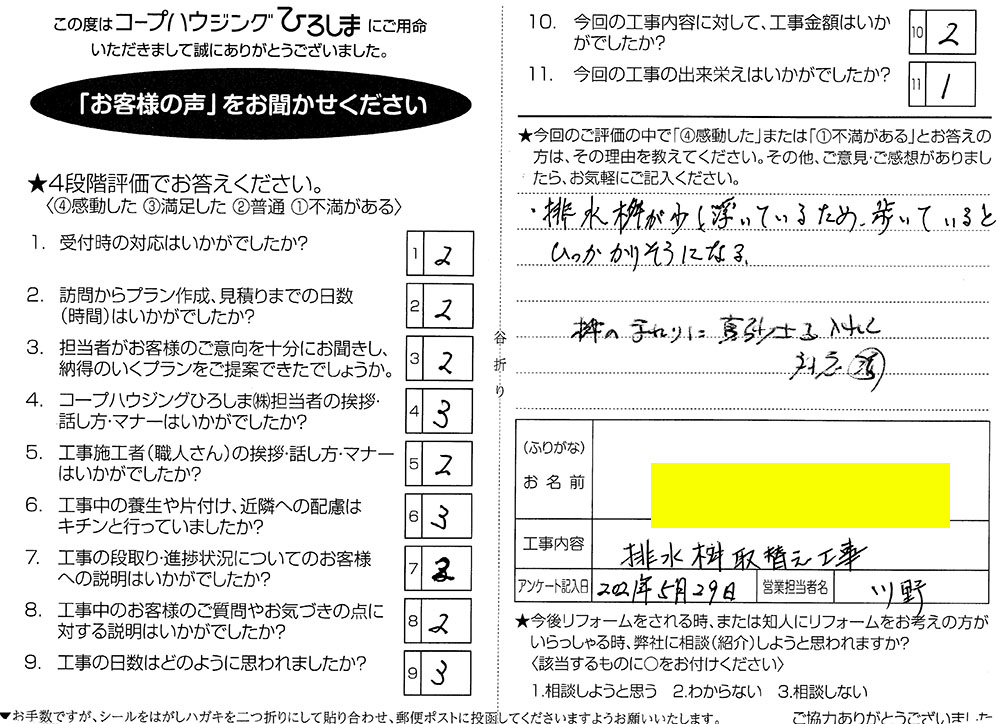 この度はコープハウジングひろしまにご用命
いただきまして誠にありがとうございました。
「お客様の声」をお聞かせください
★4段階評価でお答えください。
〈④感動した ③満足した ②普通 ①不満がある〉
1. 受付時の対応はいかがでしたか?
1 2
2. 訪問からプラン作成、見積りまでの日数
（時間）はいかがでしたか?
2 2
3. 担当者がお客様のご意向を十分にお聞きし、
納得のいくプランをご提案できたでしょうか。
3 2
4. コープハウジングひろしま㈱担当者の挨拶・
話し方・マナーはいかがでしたか?
4 3
5. 工事施工者（職人さん）の挨拶・話し方・マナー
はいかがでしたか?
5 2
6. 工事中の養生や片付け、近隣への配慮は
キチンと行っていましたか?
6 3
7. 工事の段取り・進捗状況についてのお客様
への説明はいかがでしたか?
7 2
8. 工事中のお客様のご質問やお気づきの点に
対する説明はいかがでしたか?
8 2
9. 工事の日数はどのように思われましたか?
9 3
▼お手数ですが、シールをはがしハガキを二つ折りにして貼り合わせ、郵便ポストに投函してくださいますようお願いいたします。
谷折り
10. 今回の工事内容に対して、工事金額はいか
がでしたか?
10 2
11. 今回の工事の出来栄えはいかがでしたか?
11 1
★今回のご評価の中で「④感動した」または「①不満がある」とお答えの
方は、その理由を教えてください。その他、ご意見・ご感想がありまし
たら、お気軽にご記入ください。
・排水桝が少し浮いているため、歩いていると
ひっかかりそうになる。
桝のまわりに真砂土を入れて
対応 済
（ふりがな）
お名前
工事内容 排水桝取替え工事
アンケート記入日 2021年5月29日 営業担当者名 川野
★今後リフォームをされる時、または知人にリフォームをお考えの方が
いらっしゃる時、弊社に相談（紹介）しようと思われますか?
〈該当するものに○をお付けください〉
1.相談しようと思う 2.わからない 3.相談しない
ご協力ありがとうございました